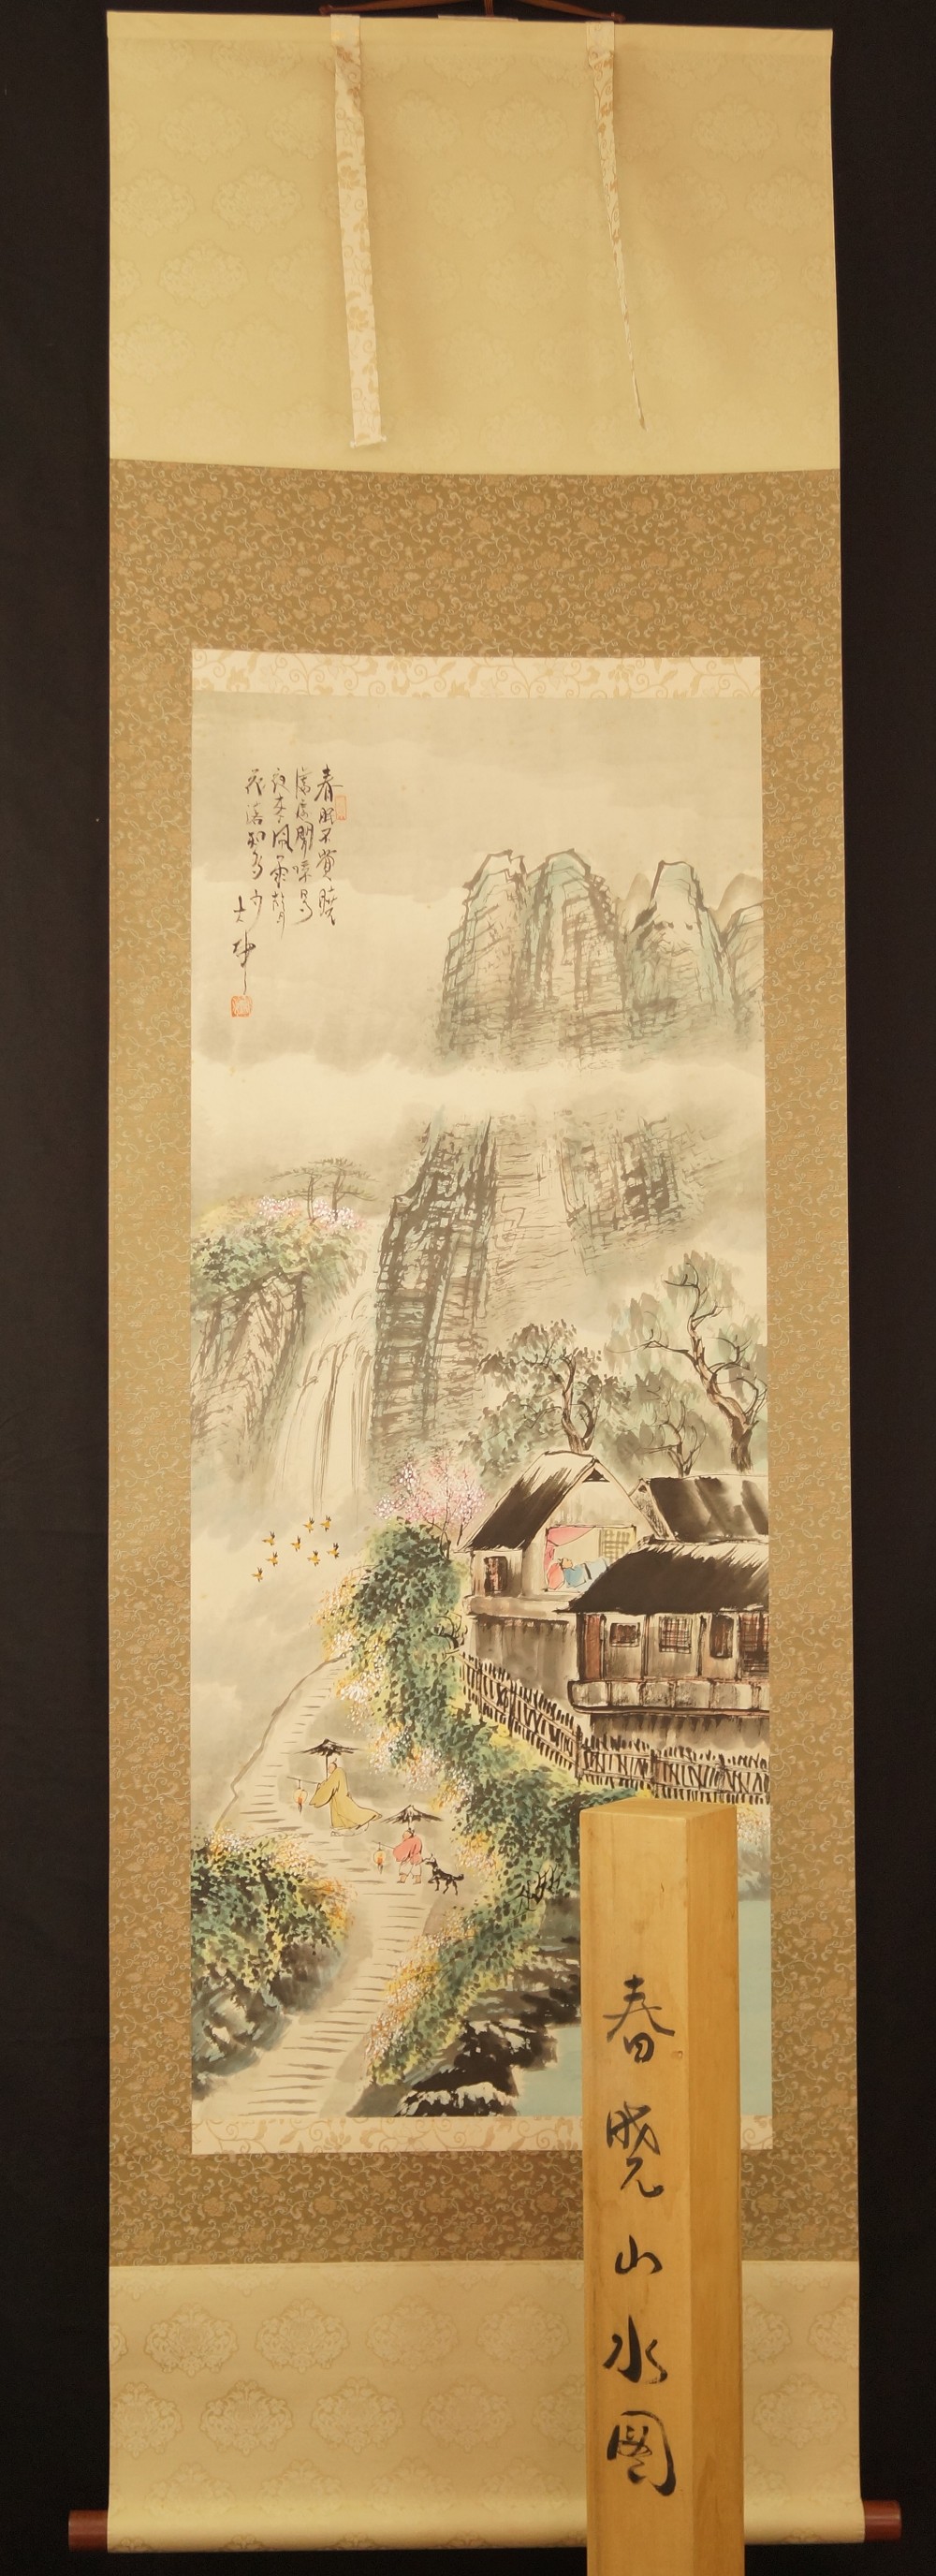 春眠不覺曉
處處聞啼鳥
夜来風雨聲
花落知多少
春曉山水図